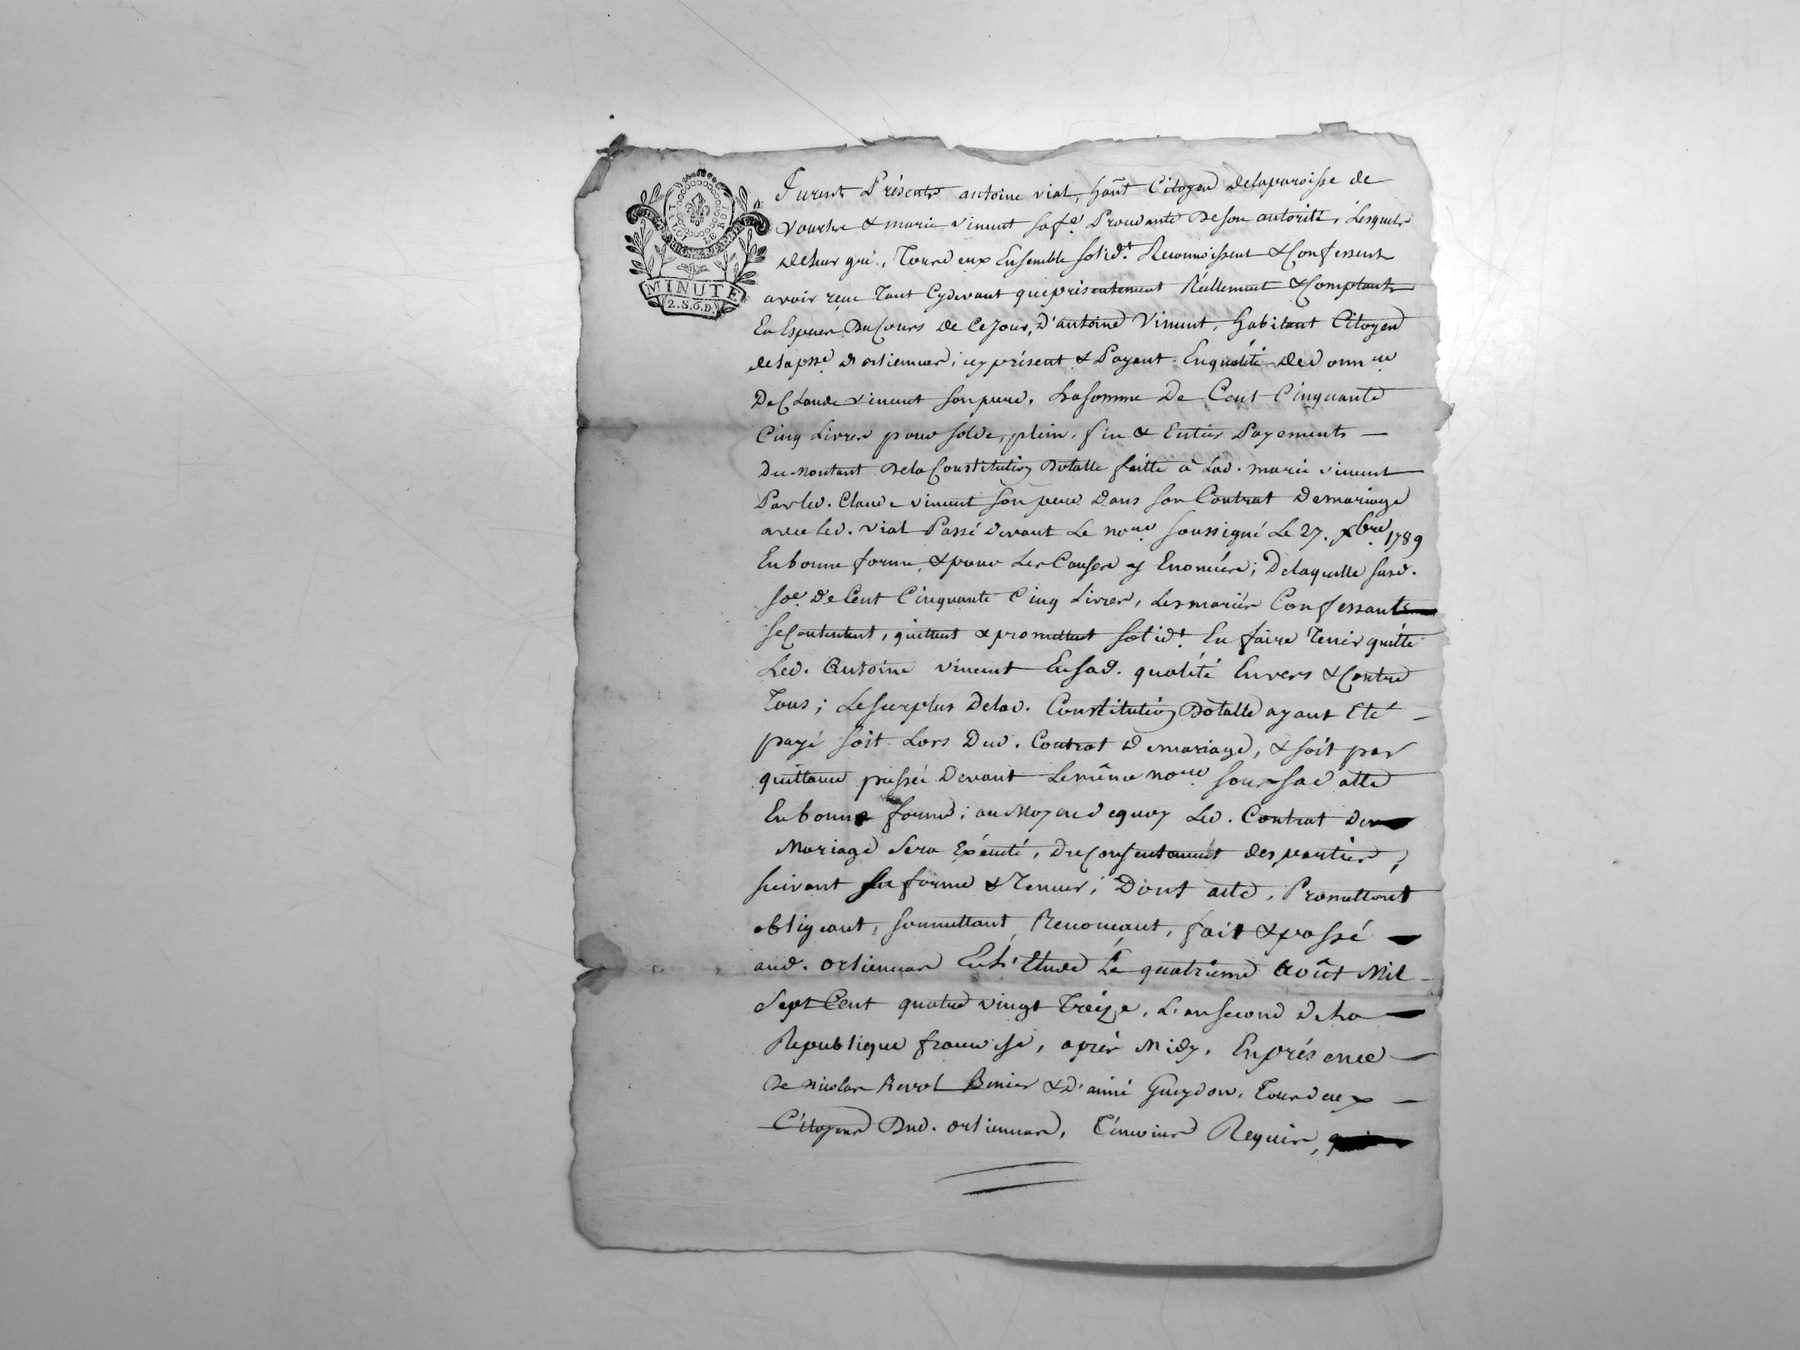 LA LOI LE ROI
MINUTE
2.S.6.D.
Furent Présents antoine vial, hãnt Citoyen delaparoisse de
Vourles & marie vincent safe. Procédante Deson autorité, Lesquels
deleur gré, Tousdeux Ensemble solidt. Reconnoissent & Confessent
avoir reçu Tant Cydevant queprésentement Réellement & Comptant
En Espèces Du Cours de Ce Jour, D'antoine Vincent, habitant Citoyen
delapsse. d'orlienas, icy présent & Payant. Enqualité de donnre
De Claude vincent sonpere, Lasomme De Cent Cinquante
Cinq Livres pour solde, plein, fin & Entier Payements —
Du montant Dela Constitution Dotalle faitte à Lad. marie vincent
Parled. Claude vincent son pere Dans son Contrat Demariage
avec led. vial Passé devant Le nore soussigné Le 27. xbre. 1789
En bonne forme, & pour Les Causes y Enoncées; Delaquelle susd.
soe. De Cent Cinquante Cinq Livres, Lesmariés Confessants
se Contentent, quittent & promettent solidt. En faire Tenir quitte
Led. Antoine vincent Ensad. qualité Envers & Contre
Tous; Lesurplus Delad. Constitution Dotalle ayant Eté —
payé soit Lors Dud. Contrat Demariage, & soit par
quittance passée Devant Lemême nore sous sa date
En bonne forme; au Moyen dequoy Led. Contrat De
Mariage sera Exécuté, Du Consentement des parties,
suivant sa forme & Teneur; Dont acte, Promettant
obligeant, soumettant, Renonceant, fait & passé
aud. orlienas En L'Etude Le quatrieme Août Mil
Sept Cent quatre vingt Treize, L'ansecond dela
Republique francoise, après Midy, Enprésence
De nicolas Revol & D'aimé Gueydon, Tousdeux —
Citoyens Dud. orlienas, Témoins Requis,